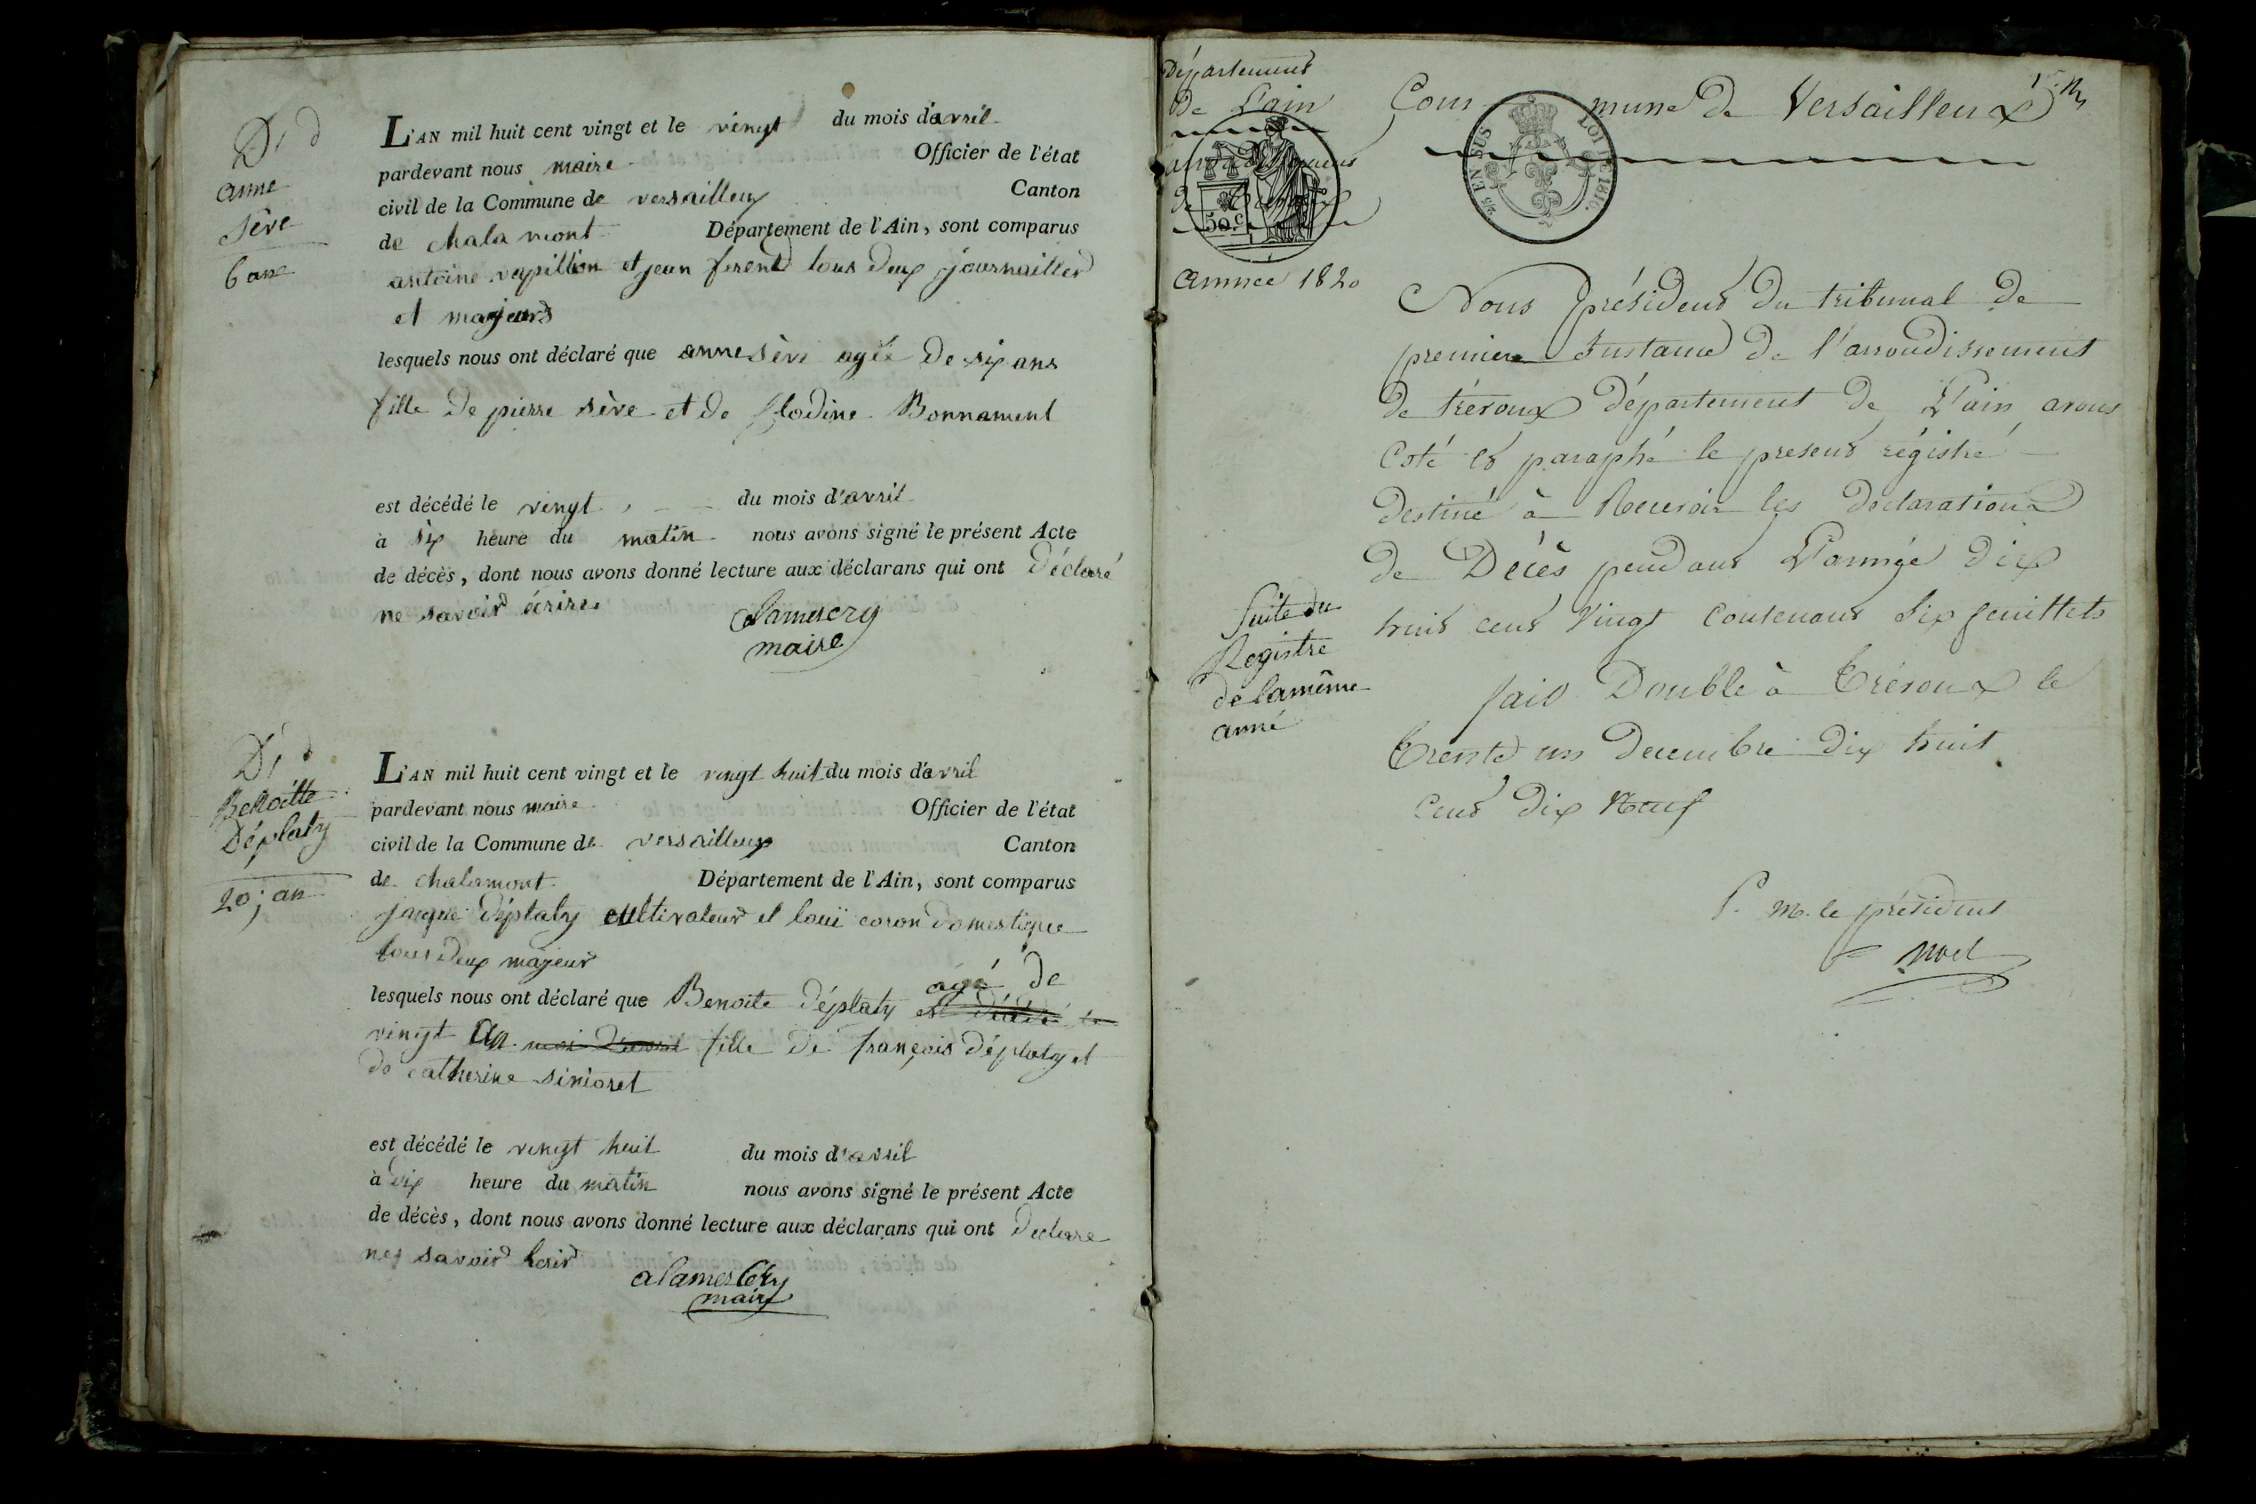 D.d
anne
Sève
6 ans
L'AN mil huit cent vingt et le vingt du mois d'avril
pardevant nous maire Officier de l'état
civil de la Commune de versailleux Canton
de chalamont Département de l'Ain, sont comparus
antoine vapillion et jean ferend tous deux journallier
et majeurs
lesquels nous ont déclaré que anne sève agée de six ans
fille de pierre sève et de Clodine Bonnament
est décédé le vingt du mois d'avril
à six heure du matin nous avons signé le présent Acte
de décès, dont nous avons donné lecture aux déclarans qui ont déclaré
ne savoir écrire
maire
D.d
Benoitte
Déplaty
20 an
L'AN mil huit cent vingt et le vingt huit du mois d'avril
pardevant nous maire Officier de l'état
civil de la Commune de versailleux Canton
de chalamont Département de l'Ain, sont comparus
jaque déplaty cultivateur et louï coron domestique
tous deux majeur
lesquels nous ont déclaré que Benoite déplaty est décédé le agé de
vingt an moi d'avril fille de françois déplaty et
de catherine sinioret
est décédé le vingt huit du mois d'avril
à dix heure du matin nous avons signé le présent Acte
de décès, dont nous avons donné lecture aux déclarans qui ont declare
ney savoir
maire
Département
De L'ain
arrondissement
de
année 1820
50.c
EN SUS
LOI DE 1816.
Commune de Versailleux
Nous président du tribunal de
premiere Instance de l'arrondissement
de trévoux département de L'ain avons
Coté et paraphé le present régistre
destiné à Recevoir les declarations
de Décès pendant L'année dix
huit cent Vingt Contenant Six feuillets
fait Double à Trévoux le
Trente un Decembre dix huit
Cent dix Neuf
Suite du
Registre
de la même
anné
P. M. le président
Noel